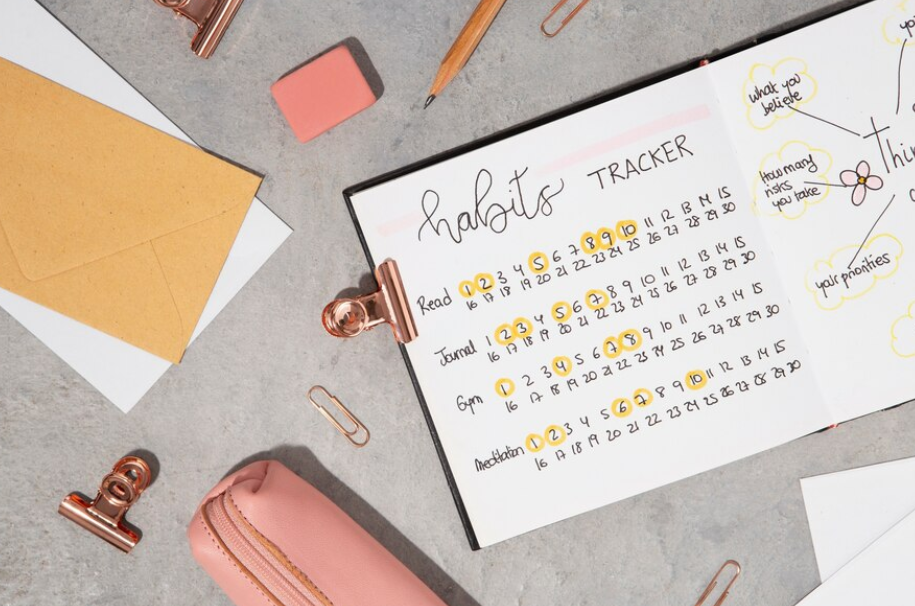 habits TRACKER
Read 1 2 3 4 5 6 7 8 9 10 11 12 13 14 15
16 17 18 19 20 21 22 23 24 25 26 27 28 29 30
Journal 1 2 3 4 5 6 7 8 9 10 11 12 13 14 15
16 17 18 19 20 21 22 23 24 25 26 27 28 29 30
Gym 1 2 3 4 5 6 7 8 9 10 11 12 13 14 15
16 17 18 19 20 21 22 23 24 25 26 27 28 29 30
Meditation 1 2 3 4 5 6 7 8 9 10 11 12 13 14 15
16 17 18 19 20 21 22 23 24 25 26 27 28 29 30
What you
believe
How many
risks
you take
your priorities